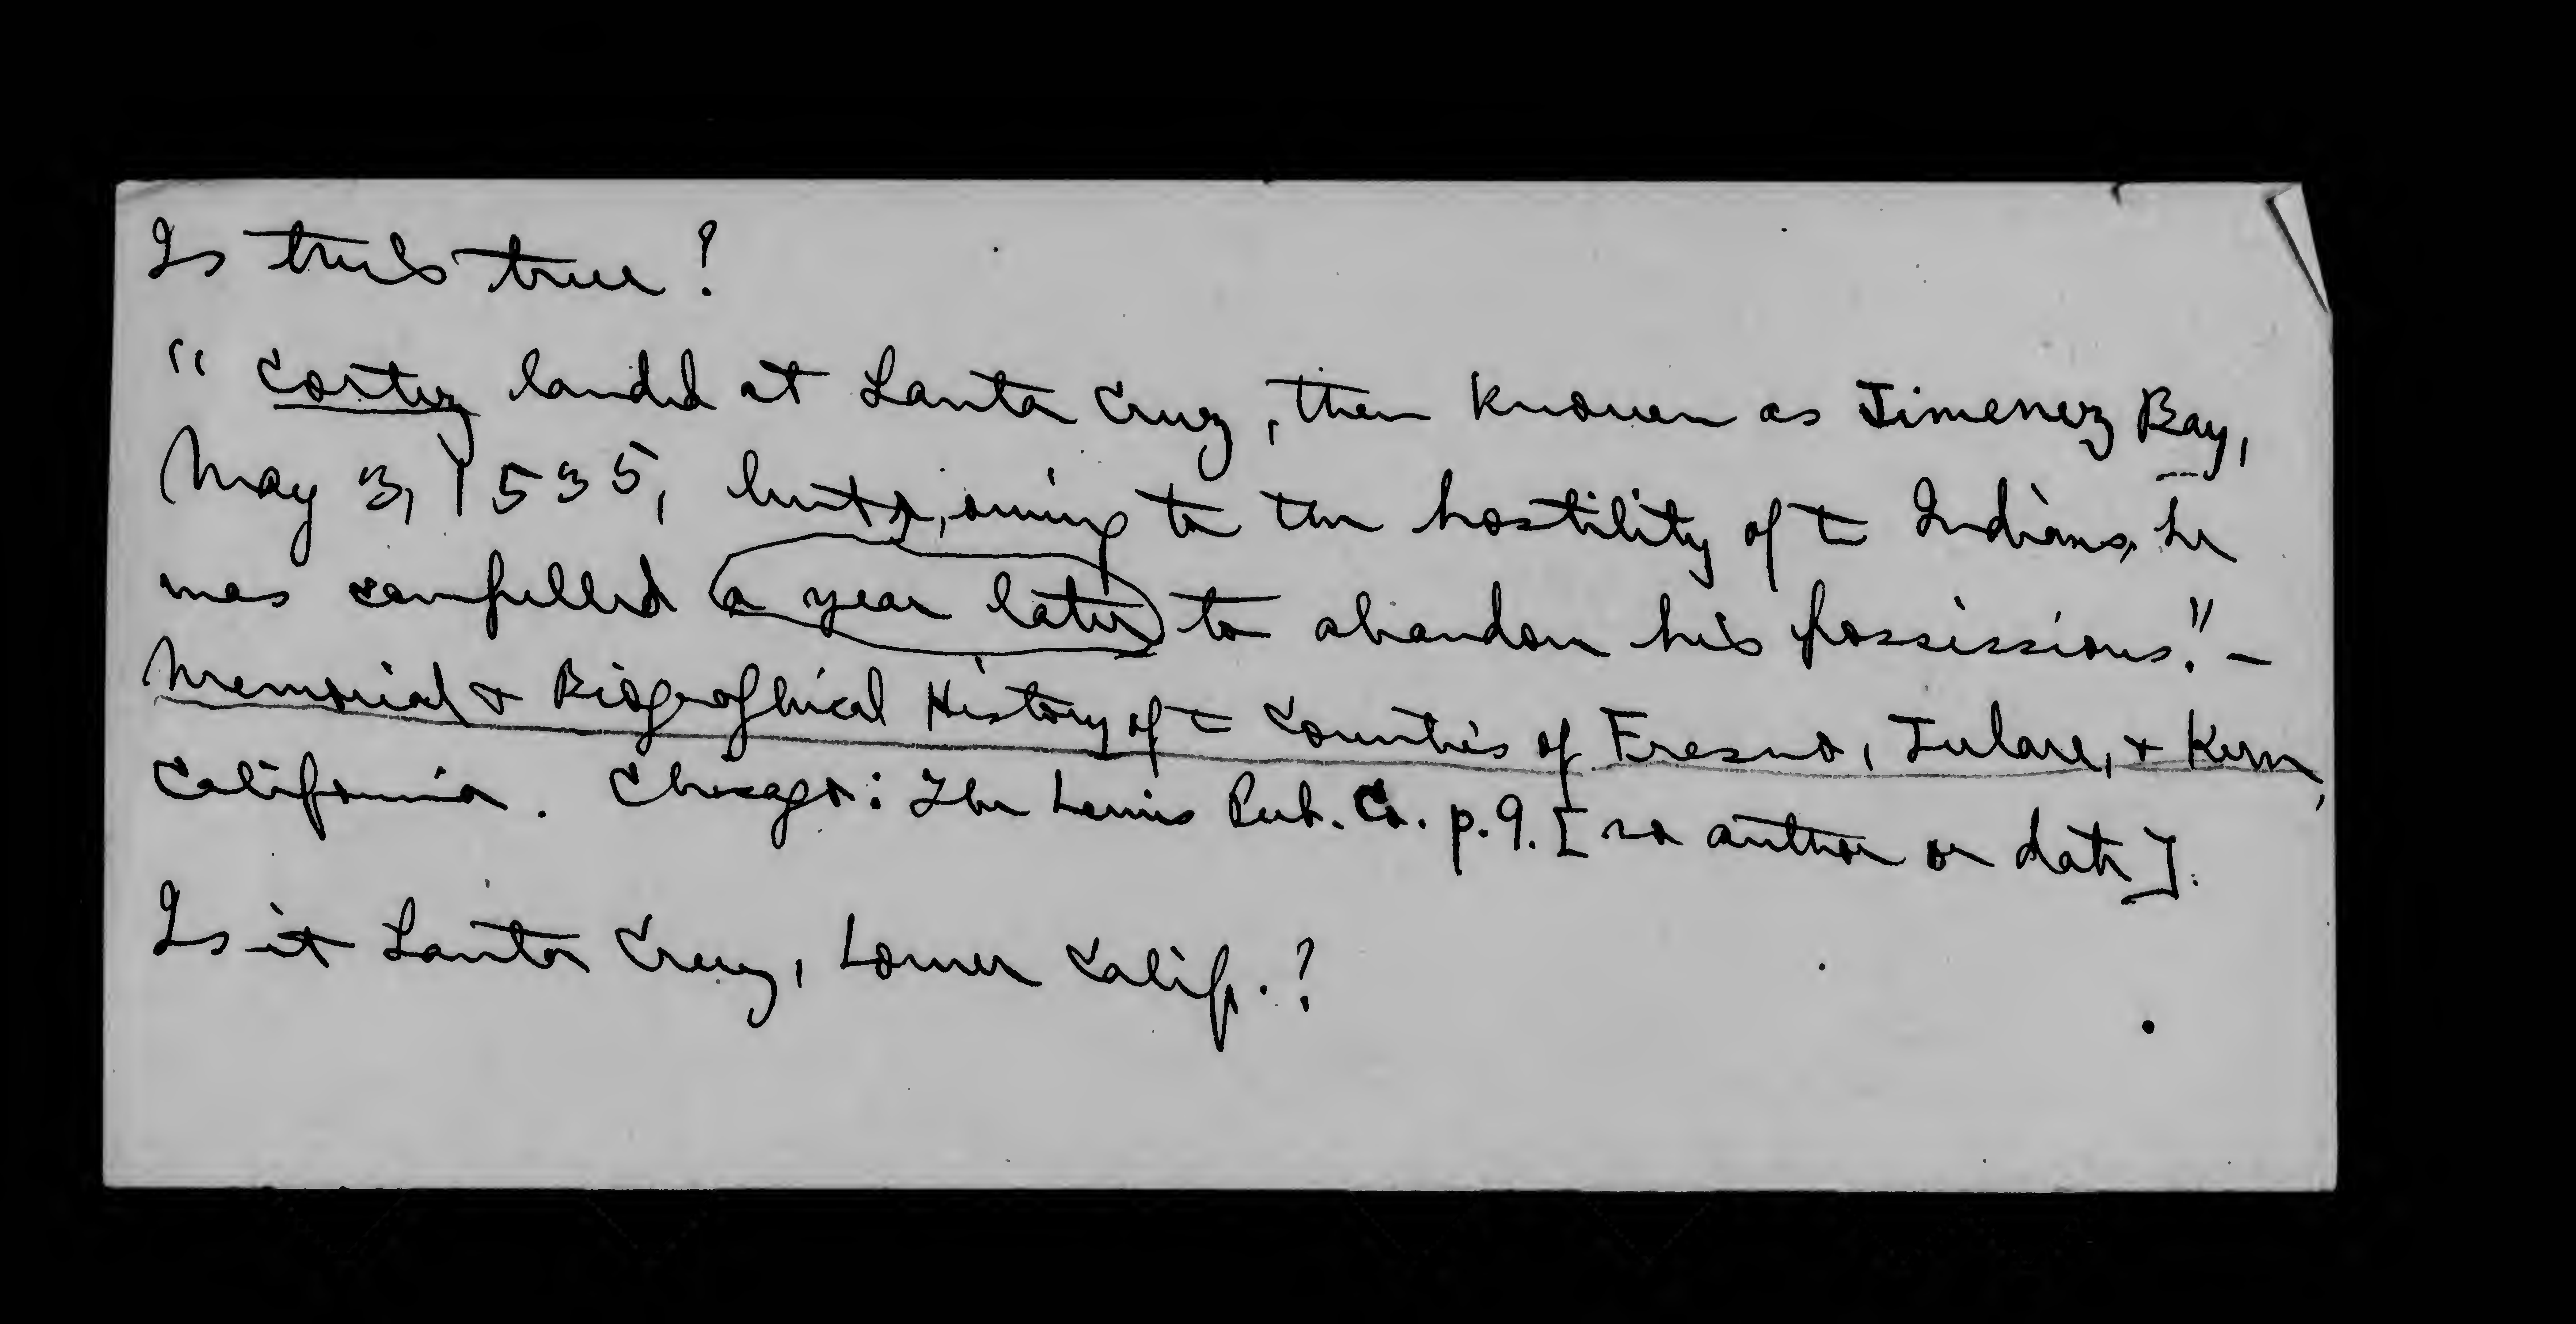 Is this true?
" Cortez landed at Santa Cruz, then known as Jimenez Bay,
May 3, 1535, but, owing to the hostility of t Indians, he
was compelled a year later to abandon his possessions." —
Memorial & Biographical History of t Counties of Fresno, Tulare, & Kern,
California. Chicago: The Lewis Pub. Co. p. 9. [no author or date].
Is it Santa Cruz, Lower Calif.?